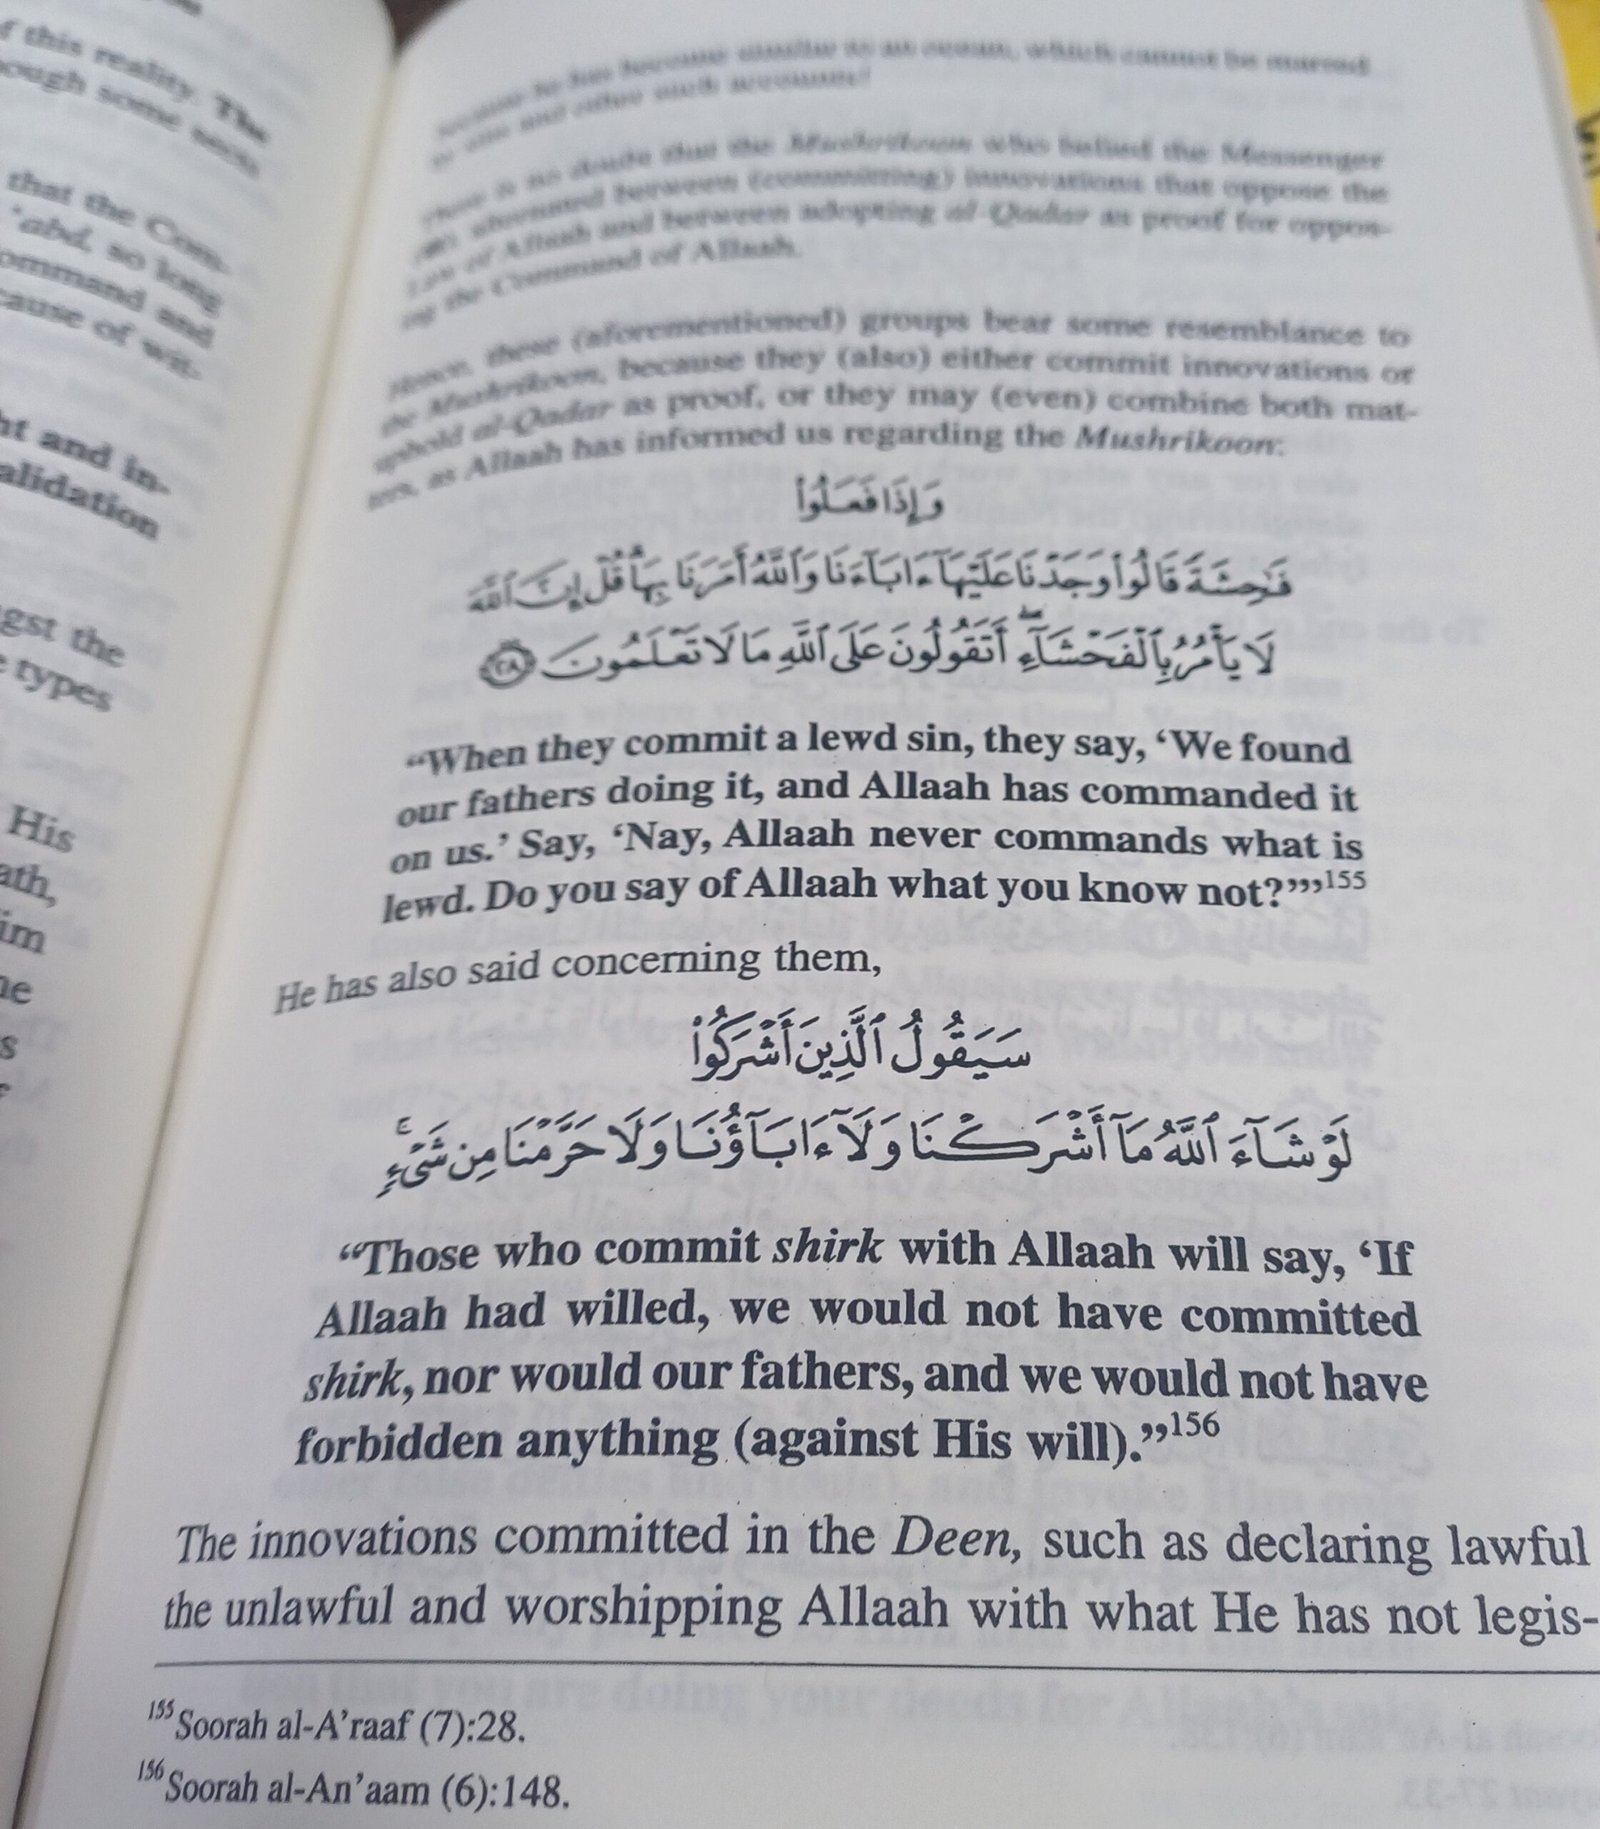 of this reality. The
though some sects
that the Com-
'abd, so long
ommand and
cause of wit-
ht and in-
alidation
gst the
e types
His
ath,
im
ne
s
because he has become similar to an ocean, which cannot be marred
by sins and other such accounts!
There is no doubt that the Mushrikoon who belied the Messenger
alternated between (committing) innovations that oppose the
Law of Allaah and between adopting al-Qadar as proof for oppos-
ing the Command of Allaah.
Hence, these (aforementioned) groups bear some resemblance to
the Mushrikoon, because they (also) either commit innovations or
uphold al-Qadar as proof, or they may (even) combine both mat-
ters, as Allaah has informed us regarding the Mushrikoon:
وَإِذَا فَعَلُوا۟
فَـٰحِشَةً قَالُوا۟ وَجَدْنَا عَلَيْهَآ ءَابَآءَنَا وَٱللَّهُ أَمَرَنَا بِهَا ۗ قُلْ إِنَّ ٱللَّهَ
لَا يَأْمُرُ بِٱلْفَحْشَآءِ ۖ أَتَقُولُونَ عَلَى ٱللَّهِ مَا لَا تَعْلَمُونَ ٢٨
“When they commit a lewd sin, they say, ‘We found
our fathers doing it, and Allaah has commanded it
on us.’ Say, ‘Nay, Allaah never commands what is
lewd. Do you say of Allaah what you know not?’”’155
He has also said concerning them,
سَيَقُولُ ٱلَّذِينَ أَشْرَكُوا۟
لَوْ شَآءَ ٱللَّهُ مَآ أَشْرَكْنَا وَلَآ ءَابَآؤُنَا وَلَا حَرَّمْنَا مِن شَىْءٍ ۚ
“Those who commit shirk with Allaah will say, ‘If
Allaah had willed, we would not have committed
shirk, nor would our fathers, and we would not have
forbidden anything (against His will).”156
The innovations committed in the Deen, such as declaring lawful
the unlawful and worshipping Allaah with what He has not legis-
155 Soorah al-A’raaf (7):28.
156 Soorah al-An’aam (6):148.